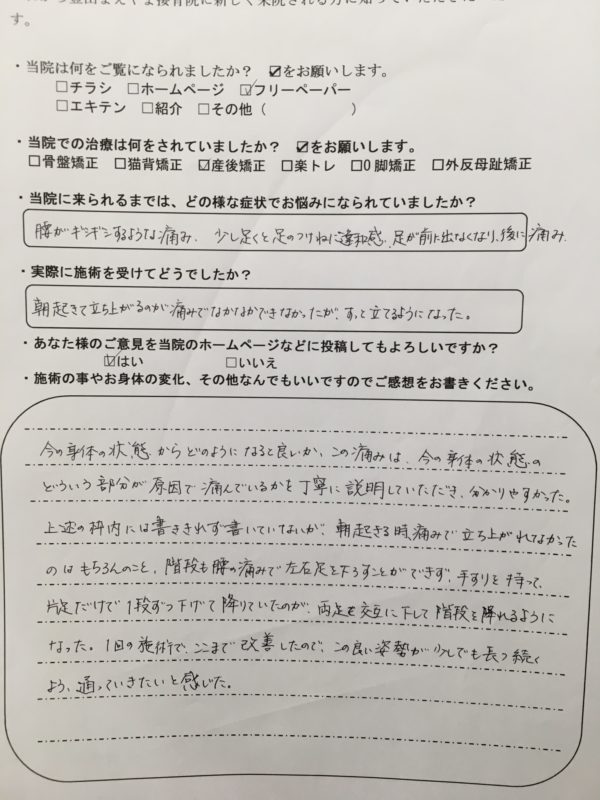 す。
・当院は何をご覧になられましたか？ ☑をお願いします。
□チラシ □ホームページ ☑フリーペーパー
□エキテン □紹介 □その他（ ）
・当院での治療は何をされていましたか？ ☑をお願いします。
□骨盤矯正 □猫背矯正 ☑産後矯正 □楽トレ □O脚矯正 □外反母趾矯正
・当院に来られるまでは、どの様な症状でお悩みになられていましたか？
腰がギシギシするような痛み、少し歩くと足のつけねに違和感、足が前に出なくなり、後に痛み
・実際に施術を受けてどうでしたか？
朝起きて立ち上がるのが痛みでなかなかできなかったが、すっと立てるようになった。
・あなた様のご意見を当院のホームページなどに投稿してもよろしいですか？
☑はい □いいえ
・施術の事やお身体の変化、その他なんでもいいですのでご感想をお書きください。
今の身体の状態からどのようになると良いか、この痛みは、今の身体の状態の
どういう部分が原因で痛んでいるかを丁寧に説明していただき、分かりやすかった。
上述の枠内には書ききれず書いていないが、朝起きる時痛みで立ち上がれなかった
のはもちろんのこと、階段も腰の痛みで左右足を下ろすことができず、手すりを持って、
片足だけで1段ずつ下げて降りていたのが、両足を交互に下して階段を降れるように
なった。1回の施術で、ここまで改善したので、この良い姿勢が少しでも長つ続く
よう、通っていきたいと感じた。